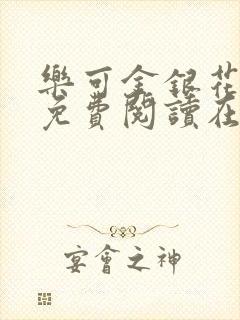 樂可金銀花
免費閱讀在
宴會之神